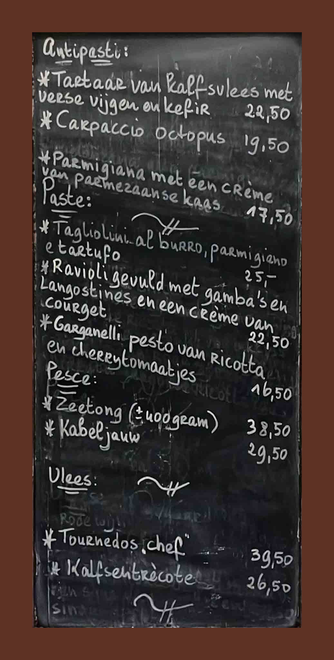 Antipasti:
* Tartaar van Kalfsvlees met
verse vijgen en kefir 22,50
* Carpaccio octopus 19,50
* Parmigiana met een crème
van parmezaanse kaas 17,50
Paste:
* Tagliolini al burro, parmigiano
e tartufo 25,-
* Ravioli gevuld met gamba's en
Langostines en een crème van
courget 22,50
* Garganelli pesto van Ricotta
en cherrytomaatjes 16,50
Pesce:
* Zeetong (±400gram) 38,50
* Kabeljauw 29,50
Vlees:
* Tournedos „chef" 39,50
* Kalfsentrècote 26,50